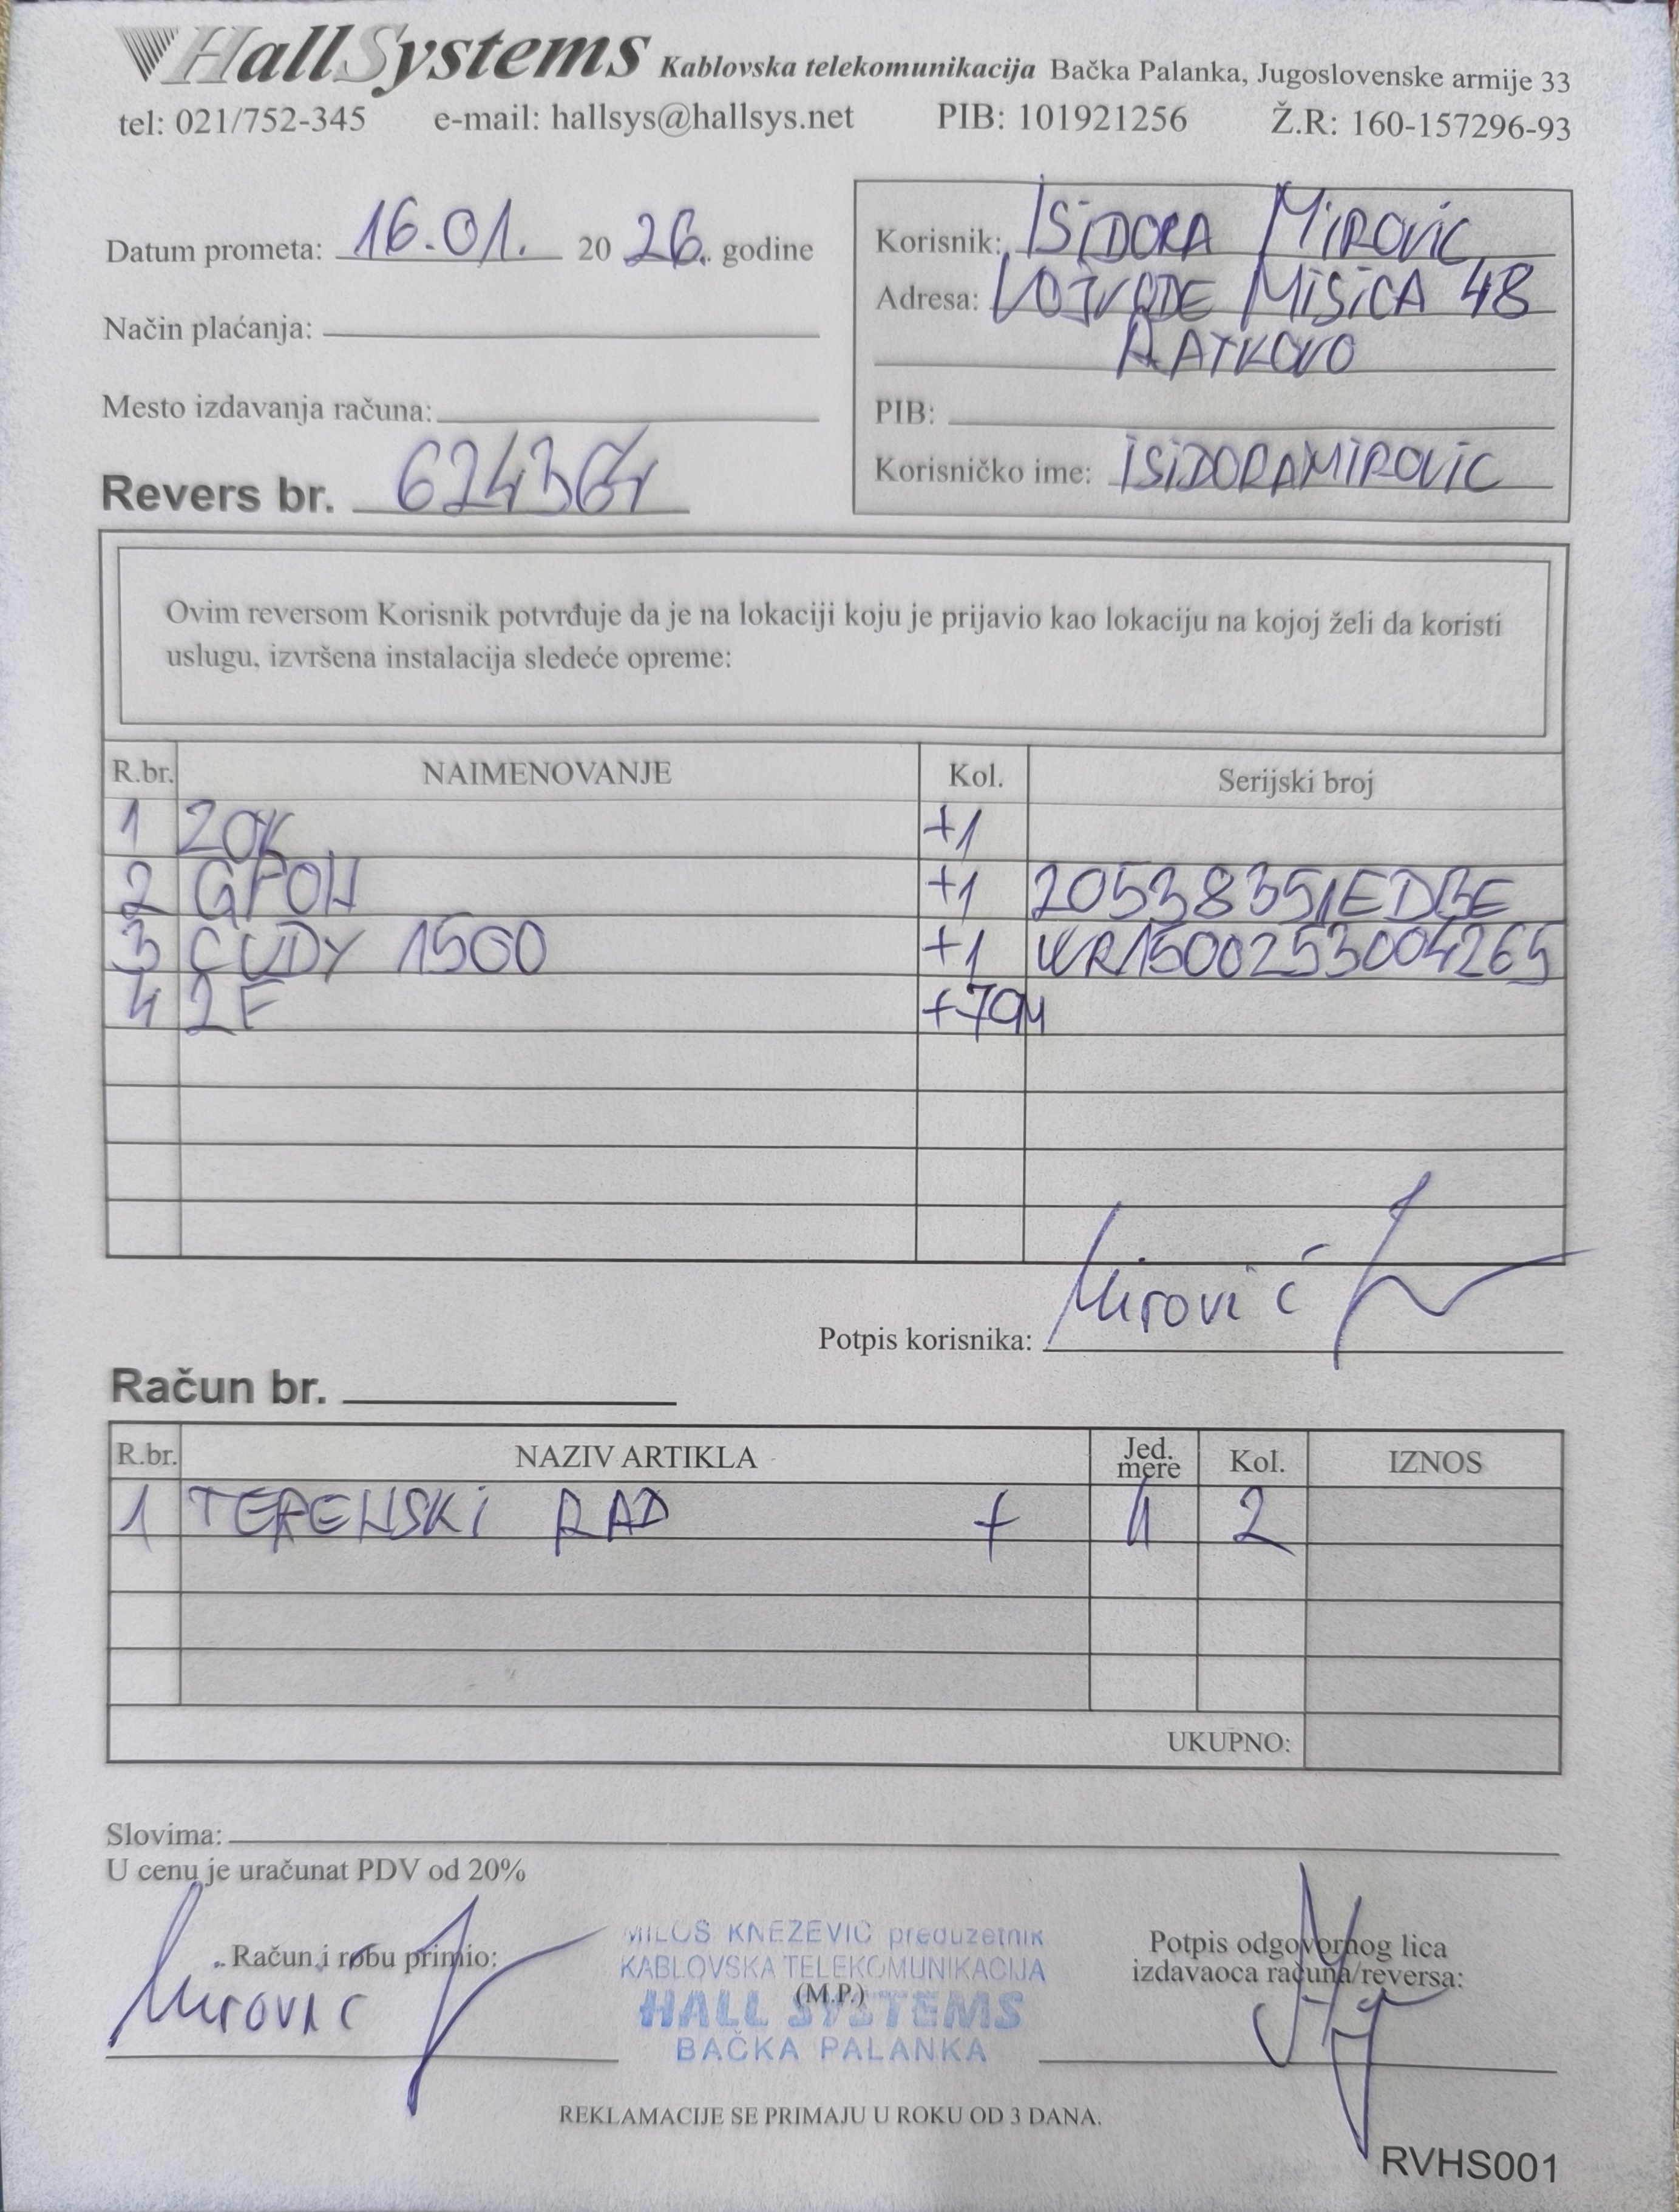 HallSystems Kablovska telekomunikacija Bačka Palanka, Jugoslovenske armije 33
tel: 021/752-345 e-mail: hallsys@hallsys.net PIB: 101921256 Ž.R: 160-157296-93
Datum prometa: 16.01. 20 26. godine
Način plaćanja:
Mesto izdavanja računa:
Revers br. 624364
Korisnik: ISIDORA MIROVIC
Adresa: VOJVODE MISICA 48
RATKOVO
PIB:
Korisničko ime: ISIDORAMIROVIC
Ovim reversom Korisnik potvrđuje da je na lokaciji koju je prijavio kao lokaciju na kojoj želi da koristi
uslugu, izvršena instalacija sledeće opreme:
R.br. NAIMENOVANJE Kol. Serijski broj
1 ZOK +1
2 GPON +1 20538351EDBE
3 CUDY 1500 +1 WR15002533004265
4 2F +79M
Potpis korisnika: Mirović
Račun br.
R.br. NAZIV ARTIKLA Jed. mere Kol. IZNOS
1 TERENSKI RAD + 1 2
UKUPNO:
Slovima:
U cenu je uračunat PDV od 20%
Račun i robu primio:
Mirović
MILOŠ KNEŽEVIĆ preduzetnik
KABLOVSKA TELEKOMUNIKACIJA
(M.P.)
HALL SYSTEMS
BAČKA PALANKA
Potpis odgovornog lica
izdavaoca računa/reversa:
REKLAMACIJE SE PRIMAJU U ROKU OD 3 DANA.
RVHS001